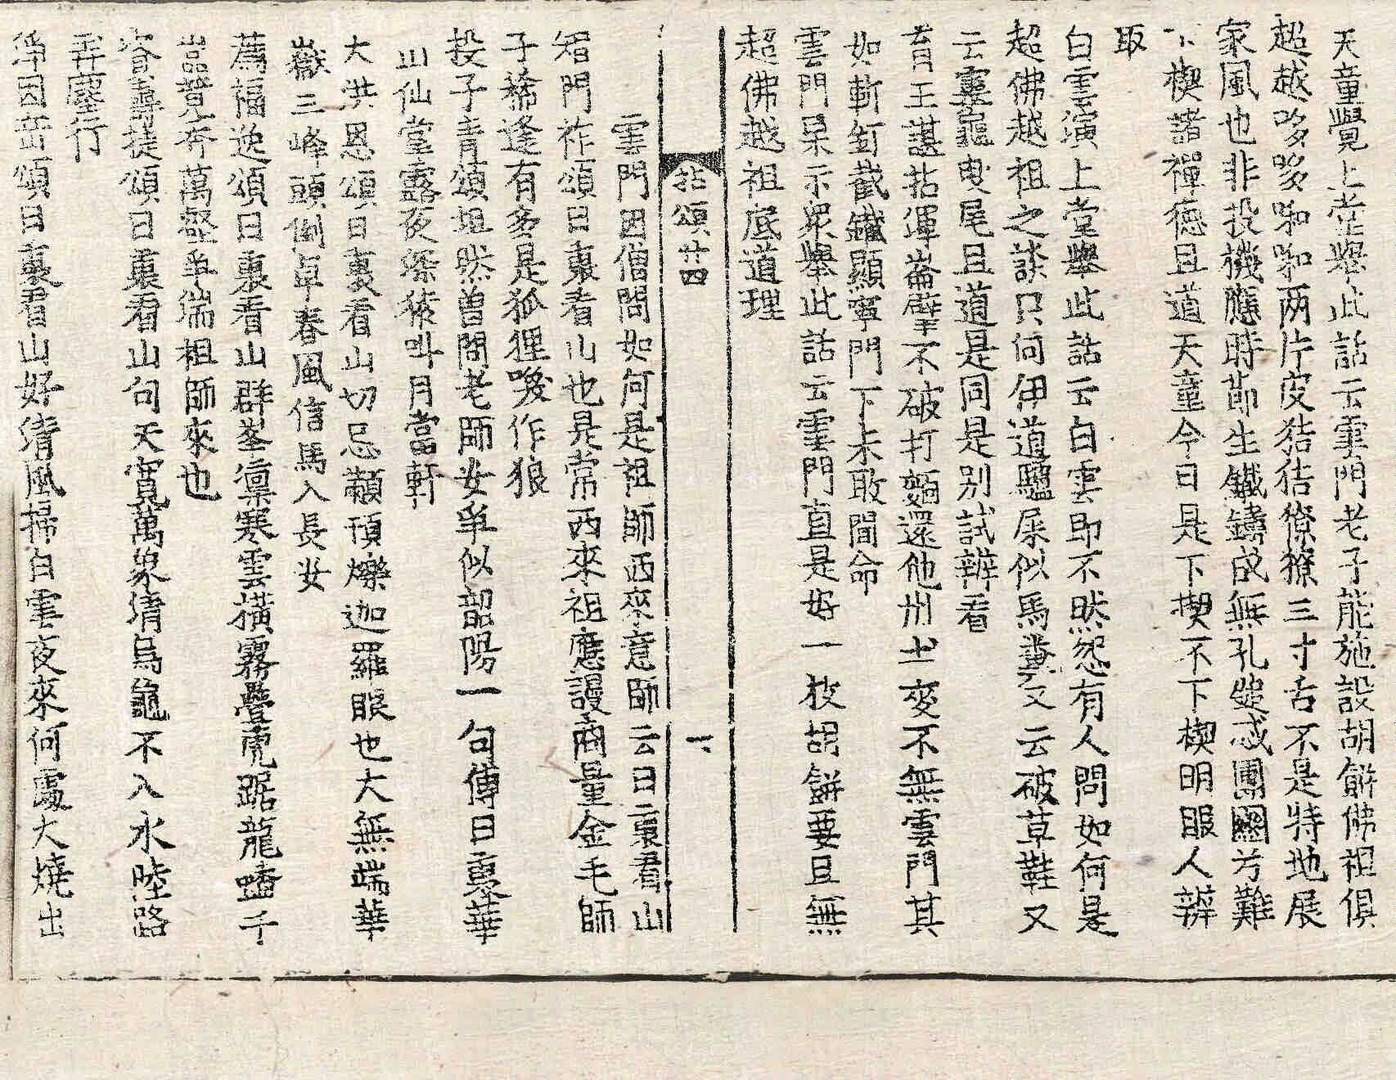 天童覺上堂擧此話云雲門老子能施設胡餠佛祖俱
超越哆哆啝啝兩片皮狤狤獠獠三寸舌不是特地展
家風也非投機應時節生鐵鑄成無孔鎚忒團圞芳難
下楔諸禪德且道天童今日是下楔不下楔明眼人辨
取
白雲演上堂擧此話云白雲卽不然忽有人問如何是
超佛越祖之談只向伊道驢屎似馬糞又云破草鞋又
云靈龜曳尾且道是同是別試辨看
育王諶拈渾崙擘不破打麵還他州土麥不無雲門其
如斬釘截鐵顯寧門下未敢閒命
雲門杲示衆擧此話云雲門直是好一枚胡餠要且無
超佛越祖底道理
拈頌廿四
雲門因僧問如何是祖師西來意師云日裏看山
智門祚頌日裏看山也是常西來祖應謾商量金毛師
子稀逢有多是狐狸喚作狼
投子青頌坦然曾問老師安爭似韶陽一句傳日裏華
山仙掌露夜深猿叫月當軒
大洪恩頌日裏看山切忌顢頇爍迦羅眼也大無端華
嶽三峰頭倒卓春風信馬入長安
薦福逸頌日裏看山群峯凜寒雲橫霧疊虎踞龍蟠千
嵓競秀萬壑爭湍祖師來也
資壽捷頌日裏看山句天寬萬象淸烏龜不入水陸路
弄塵行
淨因岳頌日裏看山好淸風掃白雲夜來何處大燒出